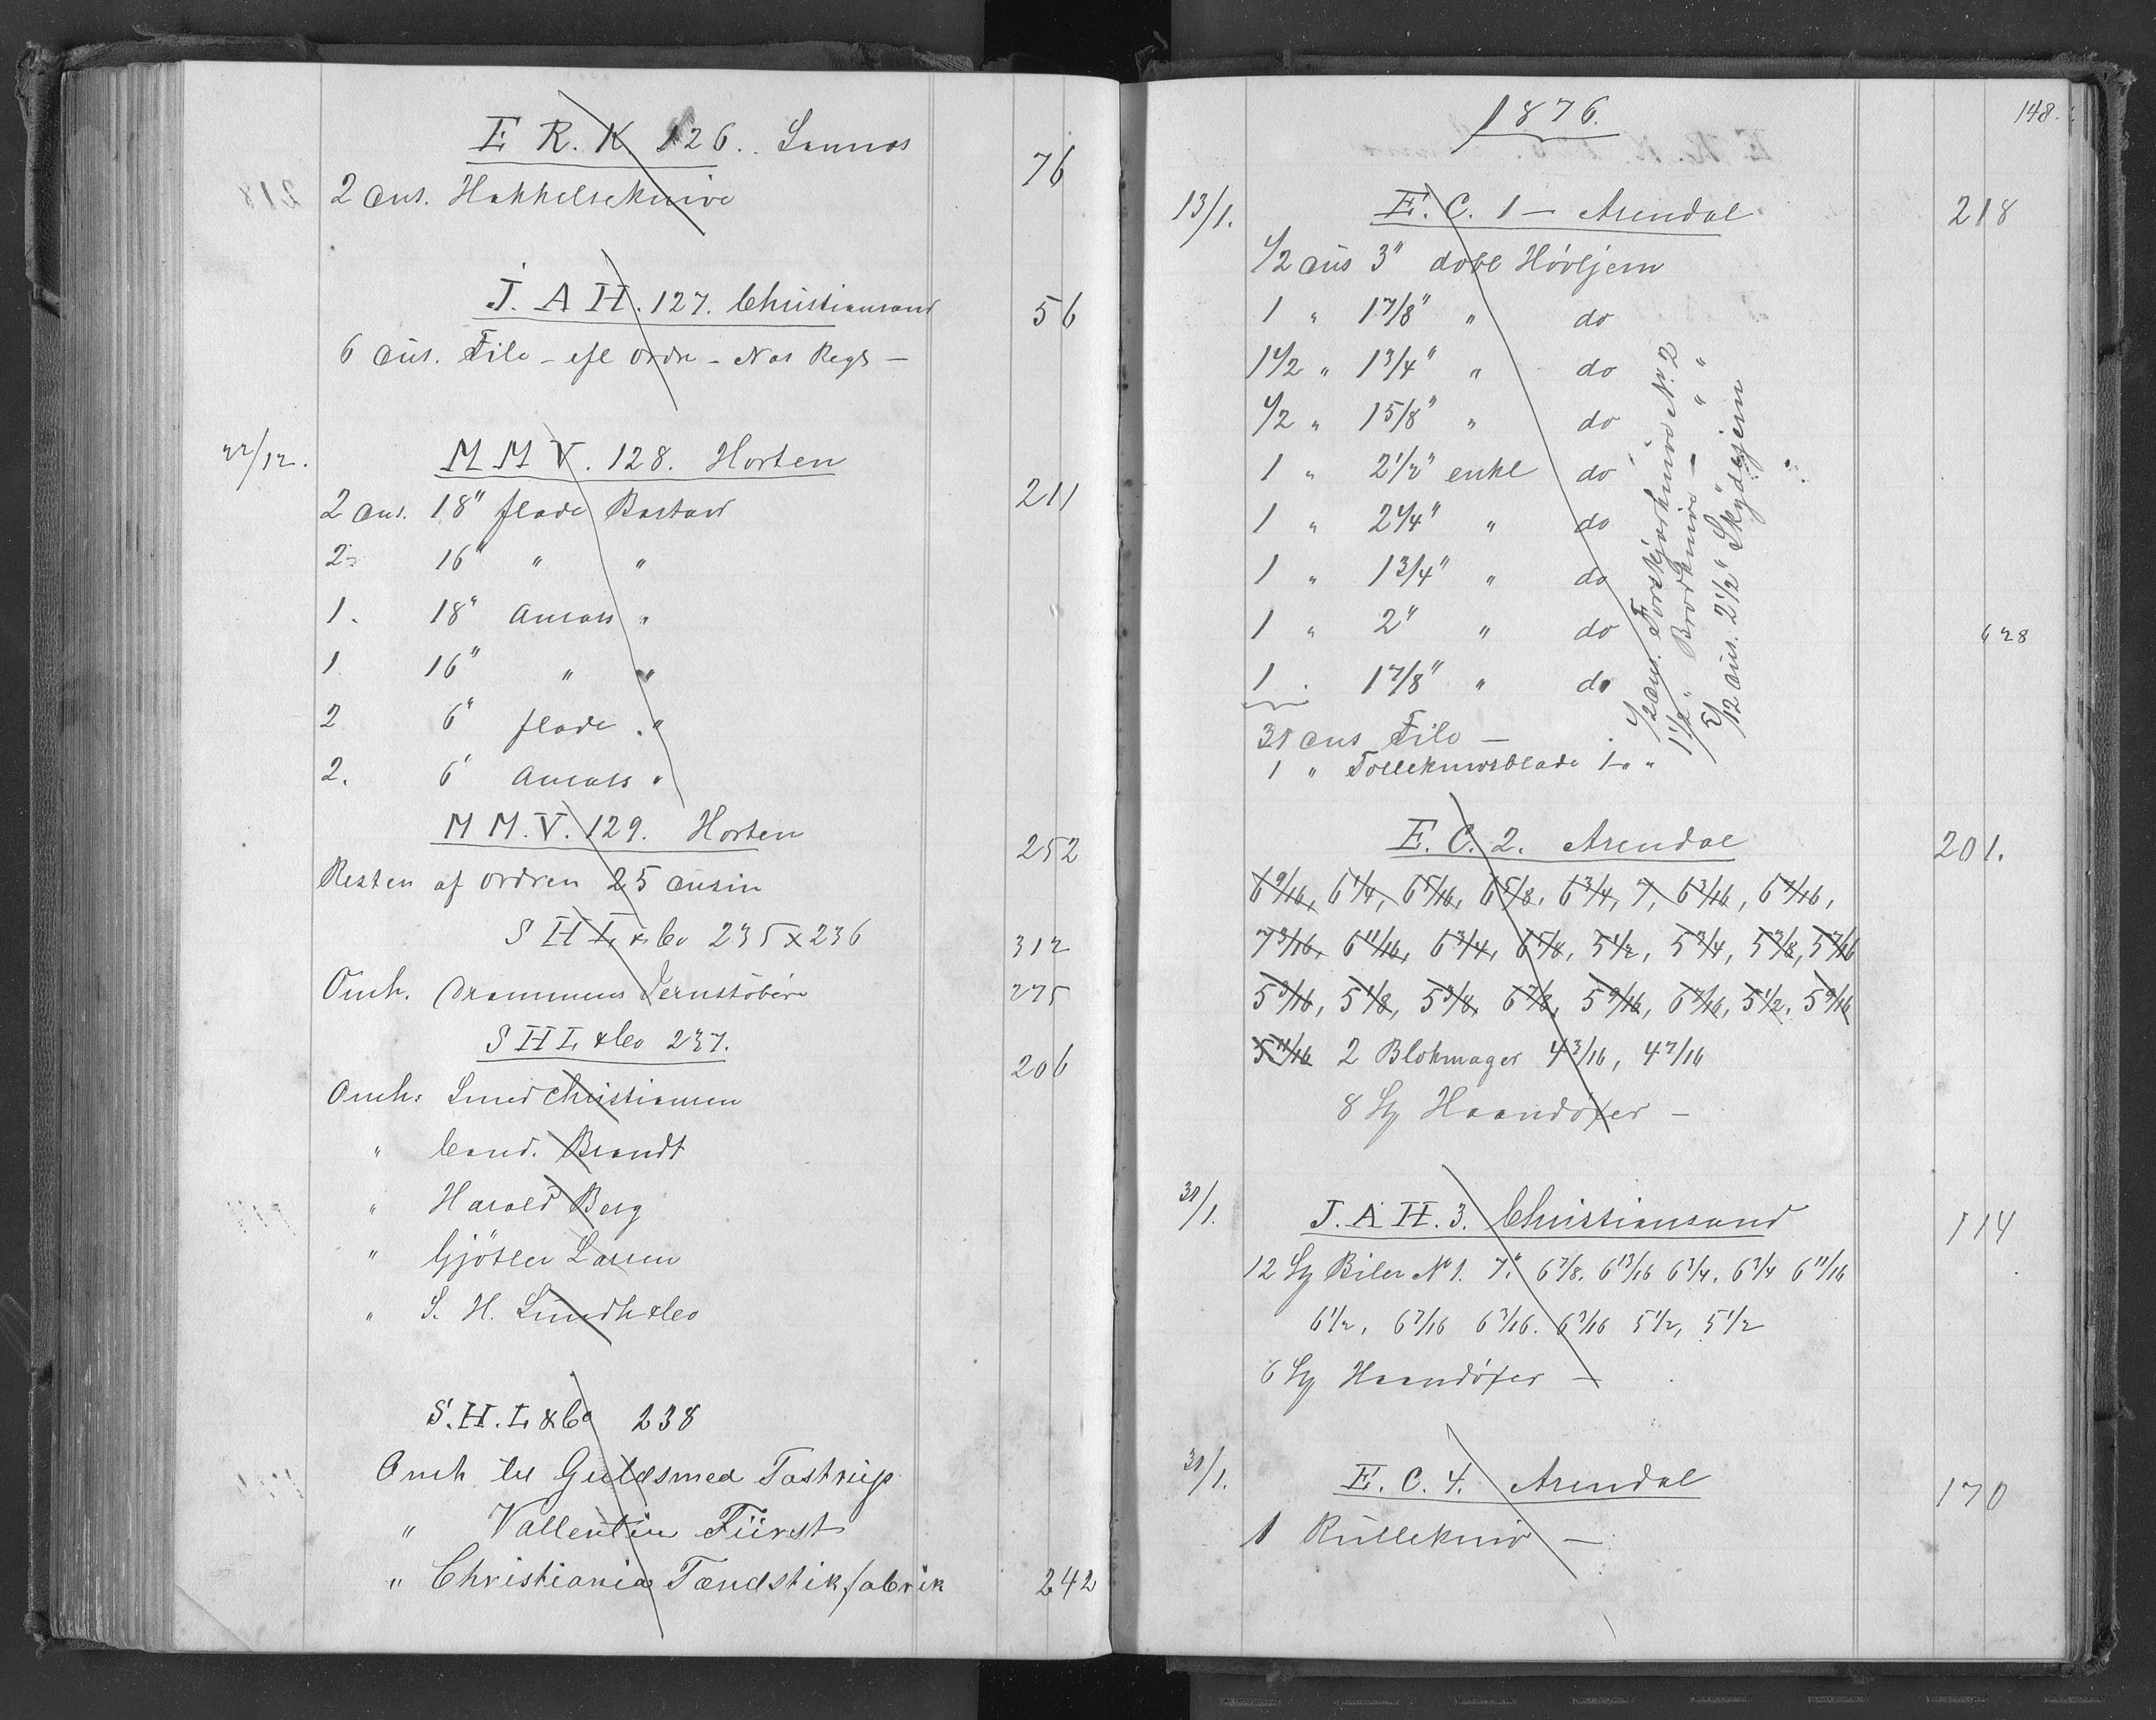 E R. K 126. Sannes 76
2 dus. Hakkelseknive
J. A H. 127. Christiansand 56
6 dus. File - efl ordre - Nos Regs -
22/12. M M V. 128. Horten
2 dus. 18" flade Bastard 211
2 16" " "
1. 18" Ansats "
1 16" " "
2 6" flade "
2. 6" Ansats "
M M. V. 129. Horten 252
Resten af ordren 25 dusin
S H L & Co 235 x 236 312
Omh. Drammens Jernstøberi 275
S H L & Co 237. 206
Omh: Smed Christiansen
" Cand. Brandt
" Harald Berg
" Gjörtler Larsen
" S. H. Lundh & Co
S. H. L & Co 238
Omh til Guldsmed Tostrup
" Vallentin Fürst
" Christiania Tændstikfabrik 242
148.
1876.
13/1. E. C. 1 - Arendal 218
1/2 dus 3" dobl Høvljern
1 " 1 7/8" " do
1 1/2 " 1 3/4" " do
1/2 " 1 5/8" " do
1 " 2 1/2" enkl do
1 " 2 1/4" " do
1 " 1 3/4" " do
1 " 2" " do
1 . 1 7/8" " do
628
31 dus File -
1 " Tolleknivsblade 1 " "
1/2 dus. Forskjærknive No. 2
1 1/2 " Brødknive - " "
5/12 dus. 2 1/2" Skydejern
E. C. 2. Arendal 201.
6 9/16, 6 1/4, 6 5/16, 6 5/8, 6 3/4, 7, 6 3/16, 6 7/16,
7 3/16, 6 11/16, 6 3/4, 6 5/8, 5 1/2, 5 3/4, 5 3/8, 5 7/16
5 3/16, 5 1/8, 5 3/8, 6 7/8, 5 9/16, 6 7/16, 5 1/2, 5 9/16
5 11/16 2 Blokmager 4 3/16, 4 7/16
8 St Haandøxer -
31/1. J. A H. 3. Christiansand 114
12 St Biler No 1. 7". 6 7/8. 6 13/16 6 3/4. 6 3/4 6 11/16
6 1/2, 6 7/16 6 3/16. 6 3/16 5 1/2, 5 1/2
6 St Haandøxer -
31/1. E. C. 4. Arendal 170
1 Rullekniv -